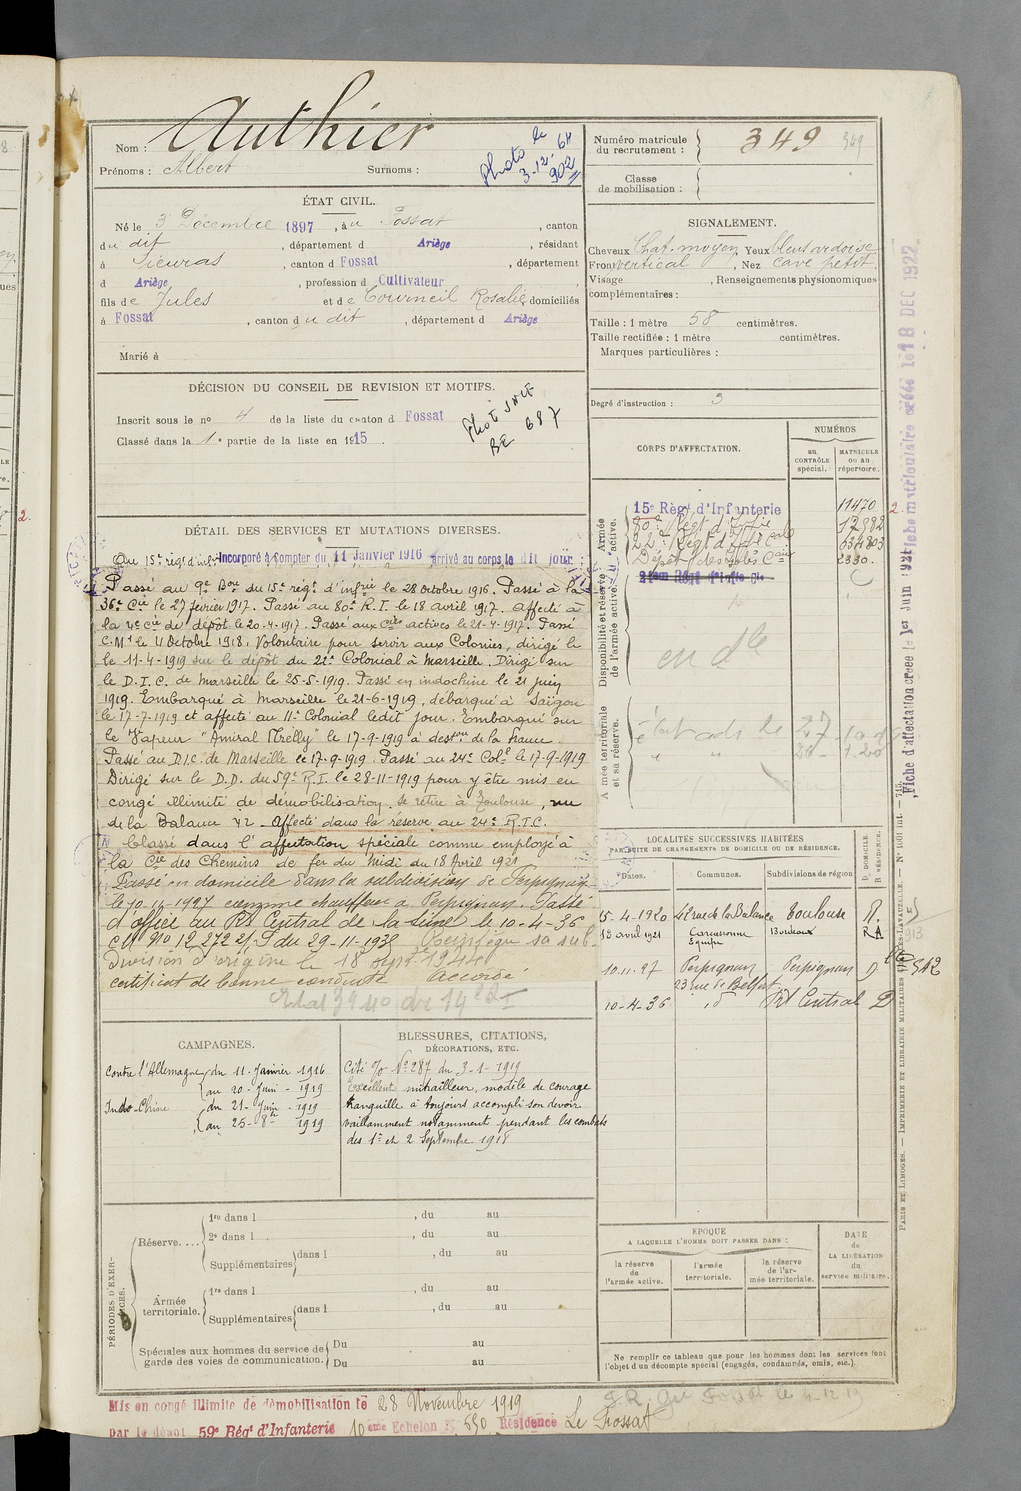 Nom : Authier
Prénoms : Albert Surnoms :
Photo le
3-12-64
902
ÉTAT CIVIL.
Né le 3 Décembre 1897, à u Fossat, canton
du dit, département d Ariège, résidant
à Sieuras, canton d Fossat, département
d Ariège, profession d Cultivateur
fils de Jules et de Tourneil Rosalie, domiciliés
à Fossat, canton du dit, département d Ariège
Marié à
DÉCISION DU CONSEIL DE REVISION ET MOTIFS.
Inscrit sous le no 4 de la liste du canton d Fossat
Classé dans la 1e partie de la liste en 1915.
Photo SNCF
BE 687
DÉTAIL DES SERVICES ET MUTATIONS DIVERSES.
Au 15e régt d'infie Incorporé à compter du 11 Janvier 1916 arrivé au corps le dit jour.
Passé au 9e Bon du 15e régt d'infrie le 28 octobre 1916. Passé à la
36e Cie le 27 février 1917. Passé au 80e R.I. le 18 avril 1917. Affecté à
la 4e Cie de dépôt le 20-4-1917. Passé aux Cies actives le 21-4-1917. Passé
C.M1 le 4 Octobre 1918. Volontaire pour servir aux Colonies, dirigé le
le 11-4-1919 sur le dépôt du 22e Colonial à Marseille. Dirigé sur
le D.I.C. de Marseille le 25-5-1919. Passé en indochine le 21 juin
1919. Embarqué à Marseille le 21-6-1919, débarqué à Saïgon
le 17-7-1919 et affecté au 11e Colonial ledit jour. Embarqué sur
le Vapeur "Amiral
le 17-9-1919 à deston de la France.
Passé au D.I.C. de Marseille le 17-9-1919. Passé au 24e Colal le 17-9-1919
Dirigé sur le D.D. du 59e R.I. le 28-11-1919 pour y être mis en
congé illimité de démobilisation, se retire à Toulouse, rue
de la Balance 42. Affecté dans la réserve au 24e R.T.C.
Classé dans l'affectation spéciale comme employé à
la Cie des Chemins de fer du Midi du 18 Avril 1921
Passé en domicile dans la subdivision de Perpignan
le 10.11-1927 comme chauffeur à Perpignan. Passé
d'office au Rt Central de la Seine le 10-4-36
CM No 12.272 du 29-11-1938 Réintègre sa sub-
division d'origine le 18 sept 1944
certificat de bonne conduite accordé
CAMPAGNES.
Contre l'Allemagne du 11-Janvier 1916
au 20-Juin-1919
Indo-Chine du 21-Juin-1919
au 25-8bre 1919
BLESSURES, CITATIONS,
DÉCORATIONS, ETC.
Cité No 287 du 3-1-1919
Excellent mitrailleur, modèle de courage
tranquille a toujours accompli son devoir
vaillamment notamment pendant les combats
des 1er et 2 Septembre 1918
PÉRIODES D'EXERCICES.
Réserve....
1re dans l , du au
2e dans l , du au
Supplémentaires dans l , du au
Armée territoriale.
1re dans l , du au
Supplémentaires dans l , du au
Spéciales aux hommes du service de garde des voies de communication.
Du au
Du au
Mis en congé illimité de démobilisation le 28 Novembre 1919
par le dépôt 59e Régt d'Infanterie 10eme Echelon No 550 Résidence Le Fossat
Numéro matricule
du recrutement : 349 349
Classe
de mobilisation :
SIGNALEMENT.
Cheveux Chat. moyen Yeux bleu ardoise
Front vertical, Nez cave petit.
Visage , Renseignements physionomiques
complémentaires :
Taille : 1 mètre 58 centimètres.
Taille rectifiée : 1 mètre centimètres.
Marques particulières :
Degré d'instruction : 3
CORPS D'AFFECTATION.
NUMÉROS
au CONTRÔLE spécial.
MATRICULE ou au répertoire.
Disponibilité et réserve de l'armée active.
Armée active.
15e Règt d'Infanterie 11470
80e Regt d'Infie 17382
22e Regt d'Inf Cale
Dépôt des Isolés Caux 2330.
en dle
Armée territoriale et sa réserve.
Fiche d'affectation créée le 1er Juin 1921
Fiche matriculaire créée le 18 DEC 1922
LOCALITÉS SUCCESSIVES HABITÉES
PAR SUITE DE CHANGEMENTS DE DOMICILE OU DE RÉSIDENCE.
Dates. Communes. Subdivisions de région. D. DOMICILE. R. RÉSIDENCE.
15-4-1920 42 rue de la Balance Toulouse R.
18 avril 1921 Carcassonne Bordeaux RA
Equipe
10.11-27 Perpignan Perpignan D 542
23 rue de Belfort
10-4-36 id Rt Central D
ÉPOQUE
A LAQUELLE L'HOMME DOIT PASSER DANS :
la réserve de l'armée active.
l'armée territoriale.
la réserve de l'armée territoriale.
DATE de LA LIBÉRATION du service militaire.
Ne remplir ce tableau que pour les hommes dont les services font
l'objet d'un décompte spécial (engagés, condamnés, omis, etc.).